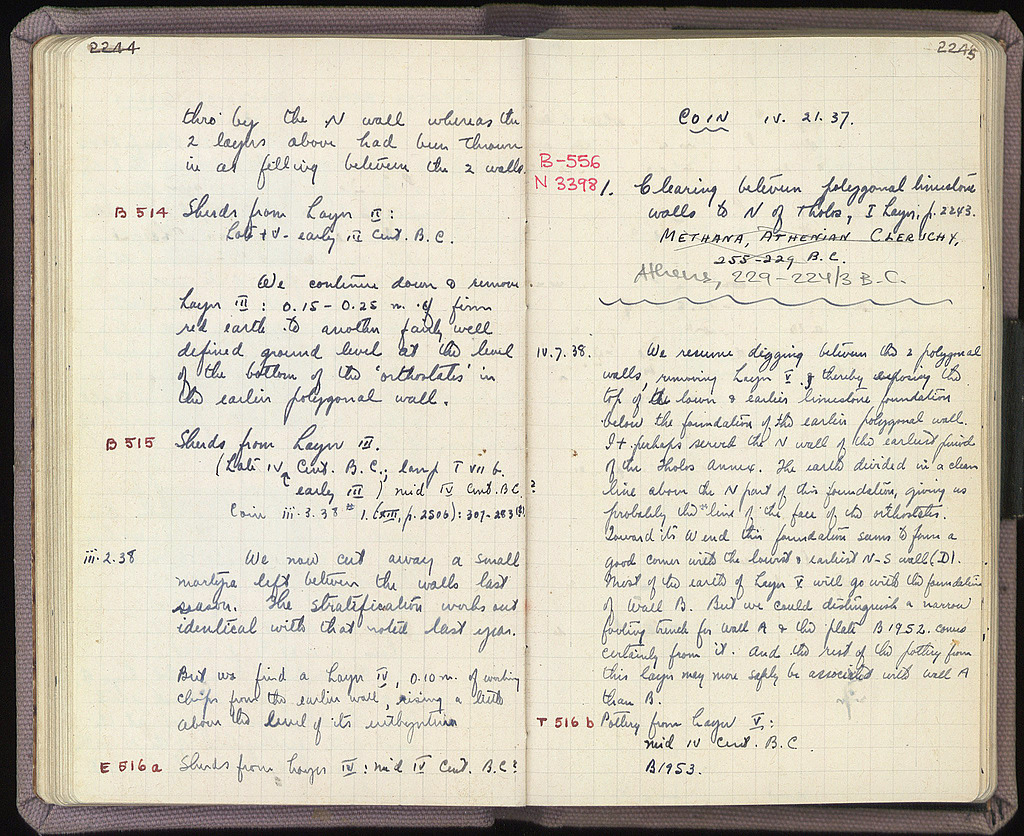 2244
thro' by the N wall whereas the
2 layers above had been thrown
in as filling between the 2 walls.
B 514 Sherds from Layer II:
Late V - early IV Cent. B.C.
We continue down & remove
Layer III: 0.15-0.25 m. of firm
red earth to another fairly well
defined ground level at the level
of the bottom of the 'orthostates' in
the earlier polygonal wall.
B 515 Sherds from Layer III.
(Late IV Cent. B.C.; lamp T VII b.
early III) mid IV Cent. B.C.?
Coin iii.3.38 # 1. (XIII, p. 2506): 307-283
iii.2.38 We now cut away a small
martyra left between the walls last
season. The stratification works out
identical with that noted last year.
But we find a Layer IV, 0.10 m. of working
chips from the earlier wall, rising a little
above the level of its euthynteria
E 516a Sherds from Layer IV: mid IV Cent. B.C?
2245
COIN IV. 21. 37.
B-556
N 3398 1. Clearing between polygonal limestone
walls to N of Tholos, I Layer, p. 2243.
METHANA, ATHENIAN CLERUCHY,
255-229 B.C.
Athens, 229-224/3 B.C.
IV.7.38. We resume digging between the 2 polygonal
walls, removing Layer V & thereby exposing the
top of the lower & earlier limestone foundation
below the foundation of the earlier polygonal wall.
It perhaps served the N wall of the earliest period
of the Tholos Annex. The earth divided in a clean
line above the N part of this foundation, giving us
probably the line of the face of the orthostates.
Toward its W end this foundation seems to form a
good corner with the lowest & earliest N-S wall (D).
Most of the earth of Layer V will go with the foundation
of Wall B. But we could distinguish a narrow
footing trench for Wall A & the plate B 1952 comes
certainly from it. And the rest of the pottery from
this layer may more safely be associated with wall A
than B.
T 516 b Pottery from Layer V:
mid IV Cent. B.C.
B 1953.